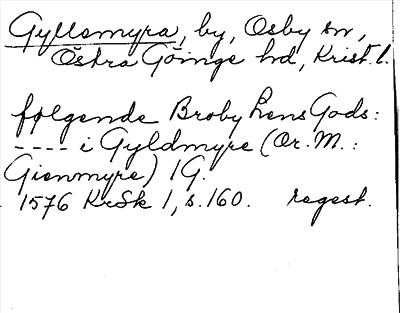 Gyllsmyra, by, Osby sn,
Östra Göinge hd, Krist. l.
følgende Broby Lens Gods:
---- i Gyldmyre (Or. M.:
Gienmyre) 1 G.
1576 KrSk 1, s. 160. regest.